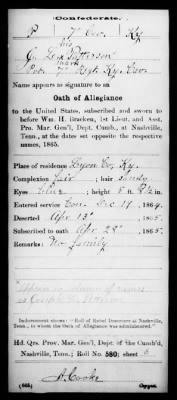 Confederate.
P 7 Cav. Ky
his
G. Lon Patterson
mark
Co. 7 Regt. Ky. Cav.
Name appears as signature to an
Oath of Allegiance
to the United States, subscribed and sworn to
before Wm. H. Bracken, 1st Lieut. and Asst.
Pro. Mar. Gen'l, Dept. Cumb., at Nashville,
Tenn., at the date set opposite the respective
names, 1865.
Place of residence Lyon Co, Ky.
Complexion fair ; hair sandy
Eyes blue ; height 5 ft. 8½ in.
Entered service Dec 17, 1864.
Deserted Apr 13", 1865.
Subscribed to oath Apr 28", 1865.
Remarks: No family
appears in column of names
as
Indorsement shows: "Roll of Rebel Deserters at Nashville,
Tenn., to whom the Oath of Allegiance was administered."
Hd. Qrs. Prov. Mar. Gen'l, Dept. of the Cumb'd,
Nashville, Tenn.; Roll No. 580; sheet
A. Cooke
(665) Copyist.